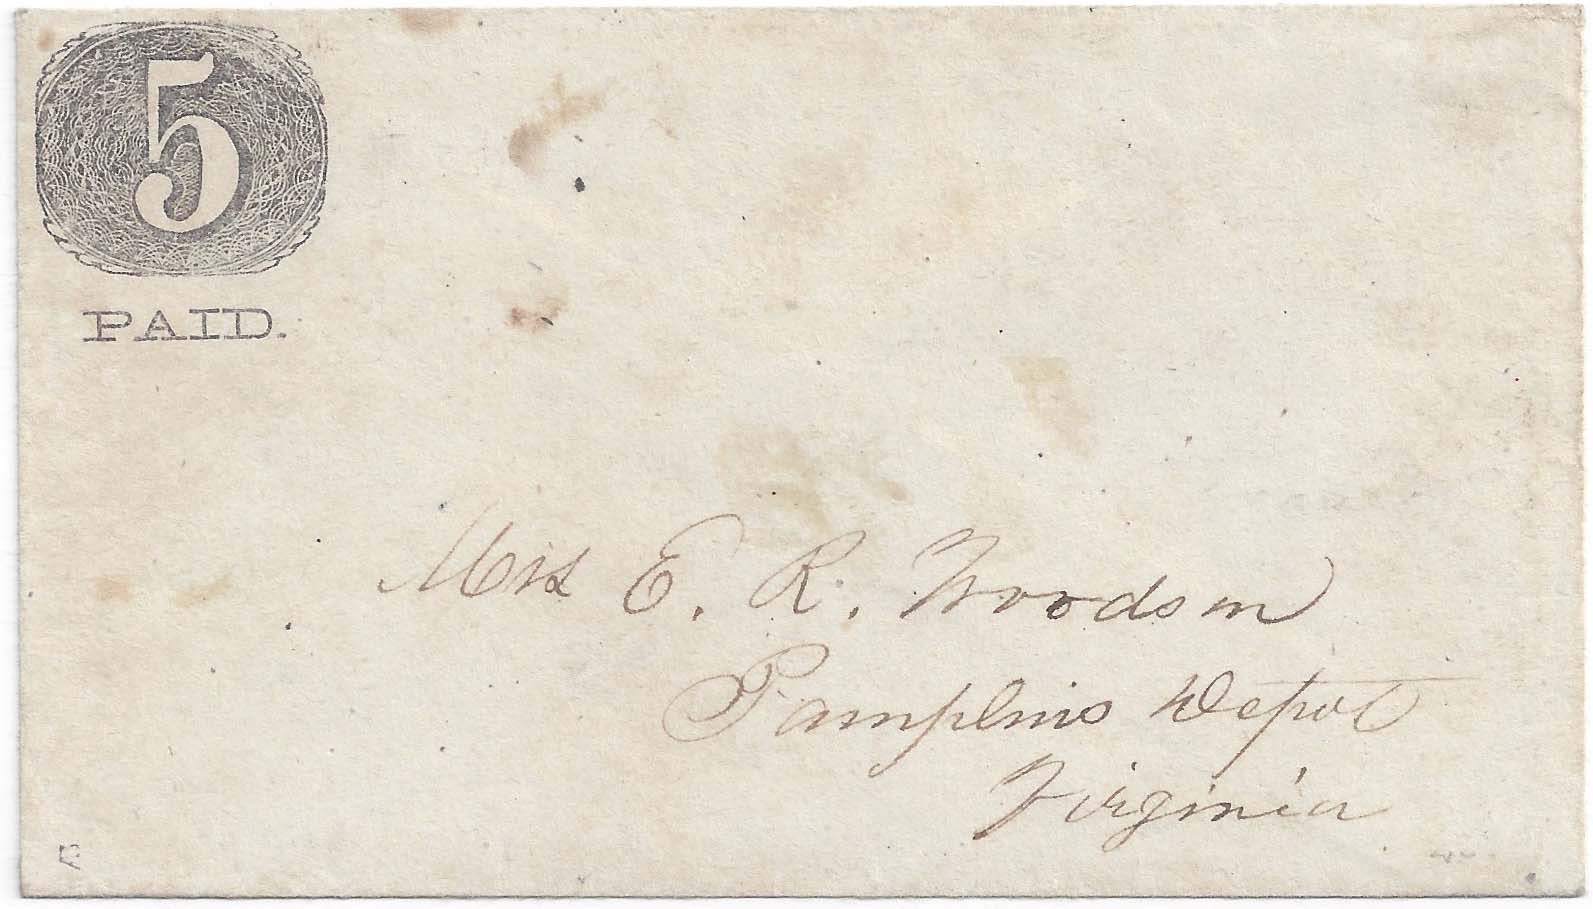 5
PAID.
Mrs E. R. Woodson
Pamplins Depot
Virginia